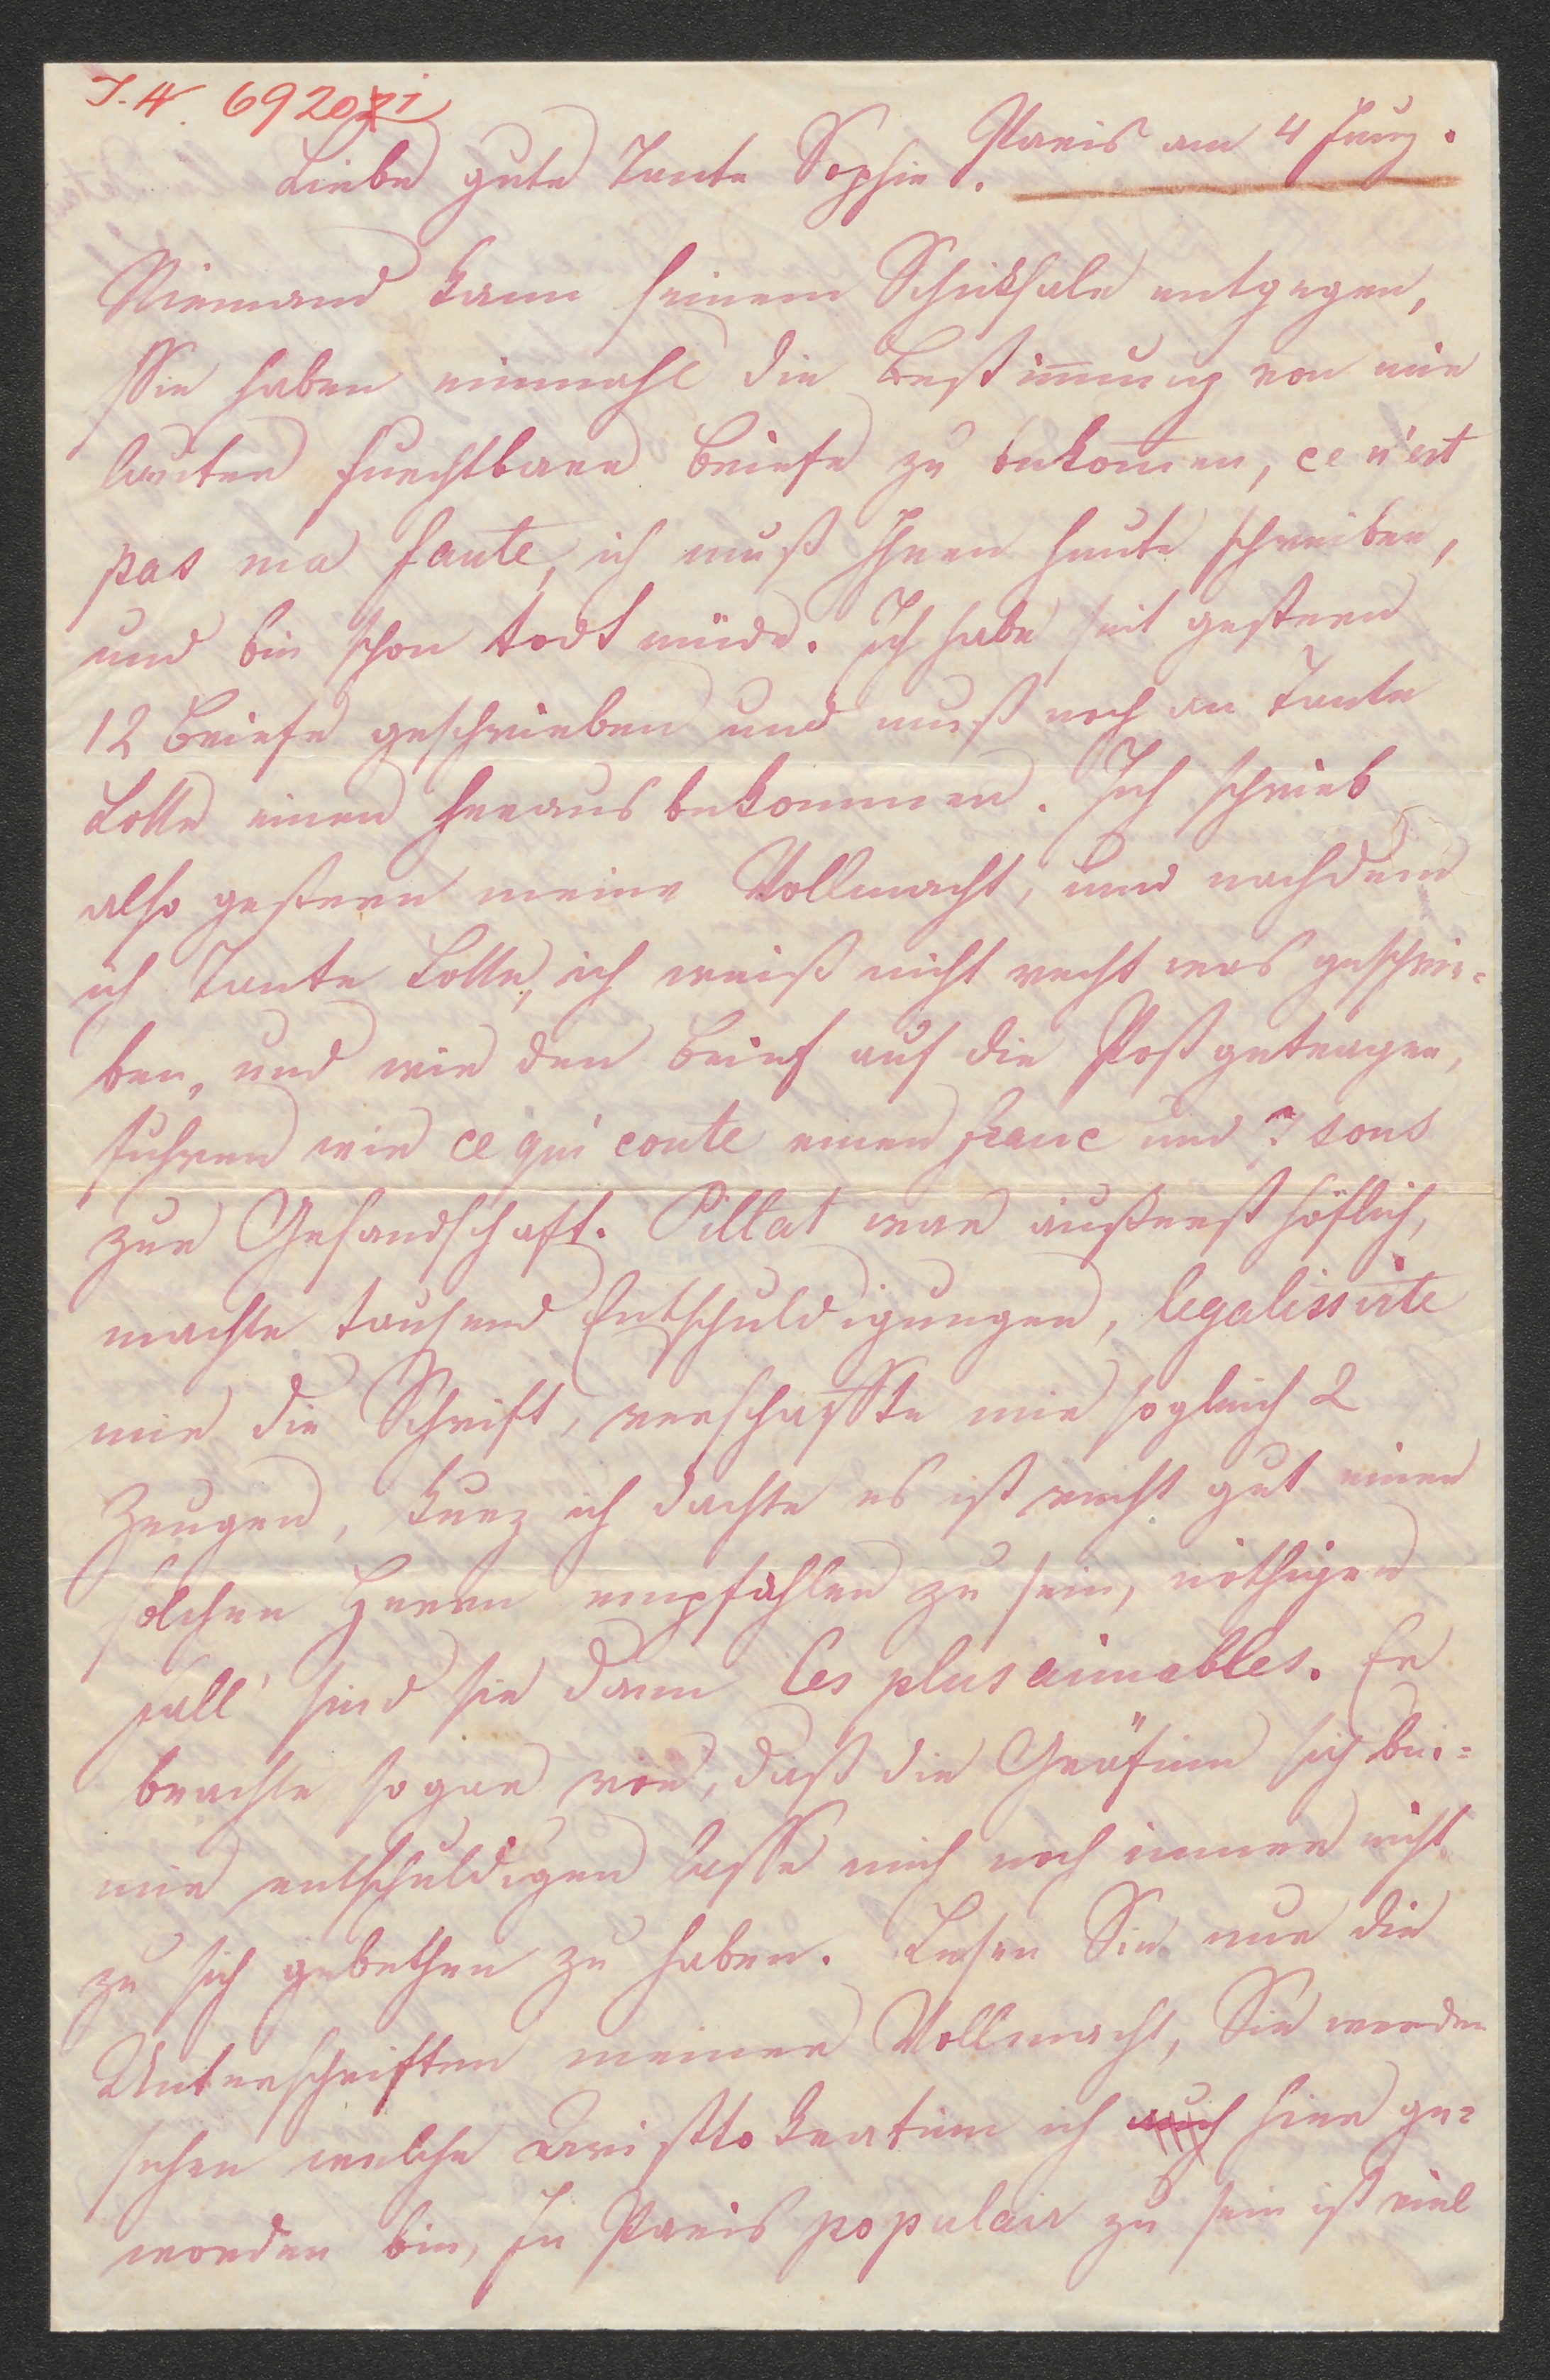 I. N. 69207i
Paris am 4 Juny.
Liebe gute Tante Sophie.
Niemand kann seinem Schiksale entgegen,
Sie haben einmahl die Bestim̅ung von mir
lauter furchtbare Briefe zu bekom̅en, ce n'est
pas ma faute, ich muß Ihnen heute schreiben,
und bin schon todt müde. Ich habe seit gestern
12 Briefe geschrieben und muß noch an Tante
Lotte einen herausbekommen. Ich schrieb
also gestern meine Vollmacht, und nachdem
ich Tante Lotte, ich weiß nicht recht was geschrie-
ben, und wir den Brief auf die Post getragen,
fuhren wir ce qui coute einen franc und sous
zur Gesandschaft. Pillat war äußerst höflich,
machte tausend Entschuldigungen, legalissirte
mir die Schrift, verschaffte mir sogleich 2
Zeugen, kurz ich dachte es ist recht gut einen
solchen Herrn empfohlen zu sein, nöthigen
fall' sind sie dann les plus aimables. Er
brachte sogar vor, daß die Gräfinn sich bei=
mir entschuldigen lasse mich noch immer nicht
zu sich gebethen zu haben. Lesen Sie nur die
Unterschriften meiner Vollmacht, Sie werden
sehen welche Aristtokratinn ich auch hier ge=
worden bin, In Paris populair zu sein ist viel